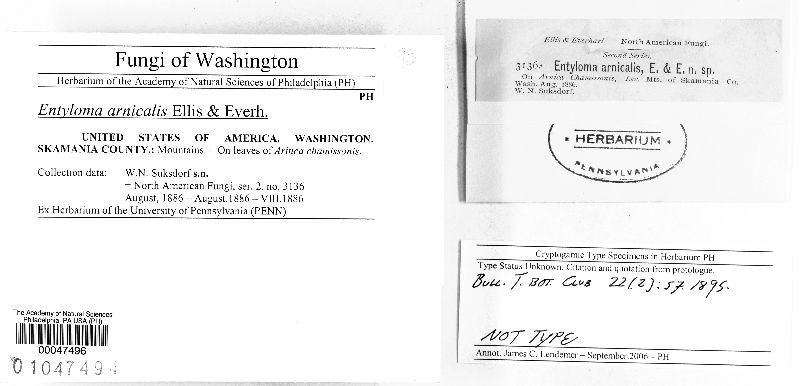 Fungi of Washington
Herbarium of the Academy of Natural Sciences of Philadelphia (PH)
PH
Entyloma arnicalis Ellis & Everh.
UNITED STATES OF AMERICA. WASHINGTON.
SKAMANIA COUNTY.: Mountains – On leaves of Arinca chamissonis.
Collection data: W.N. Suksdorf s.n.
= North American Fungi, ser. 2. no. 3136
August, 1886 – August.1886 – VIII.1886
Ex Herbarium of the University of Pennsylvania (PENN)
The Academy of Natural Sciences
Philadelphia, PA USA (PH)
00047496
01047494
Ellis & Everhart. North American Fungi.
Second Series.
3136. Entyloma arnicalis, E. & E. n. sp.
On Arnica Chamissonis, Less. Mts. of Skamania Co.
Wash. Aug. 1886.
W. N. Suksdorf.
• HERBARIUM •
PENNSYLVANIA
Cryptogamic Type Specimens in Herbarium PH
Type Status Unknown. Citation and quotation from protologue.
Bull. T. Bot. Club 22(2): 57. 1895.
NOT TYPE
Annot. James C. Lendemer – September.2006 – PH